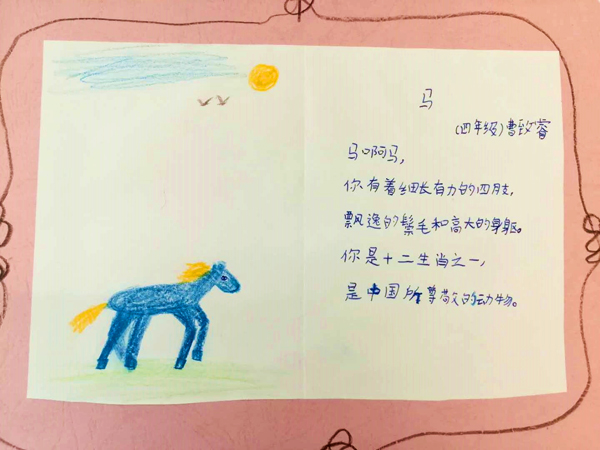 马
(四年级)曹致睿
马啊马,
你有着细长有力的四肢,
飘逸的鬃毛和高大的身躯。
你是十二生肖之一,
是中国所尊敬的动物。